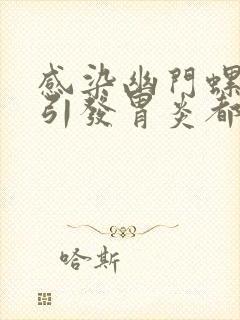 感染幽門螺
引發胃炎都
哈斯